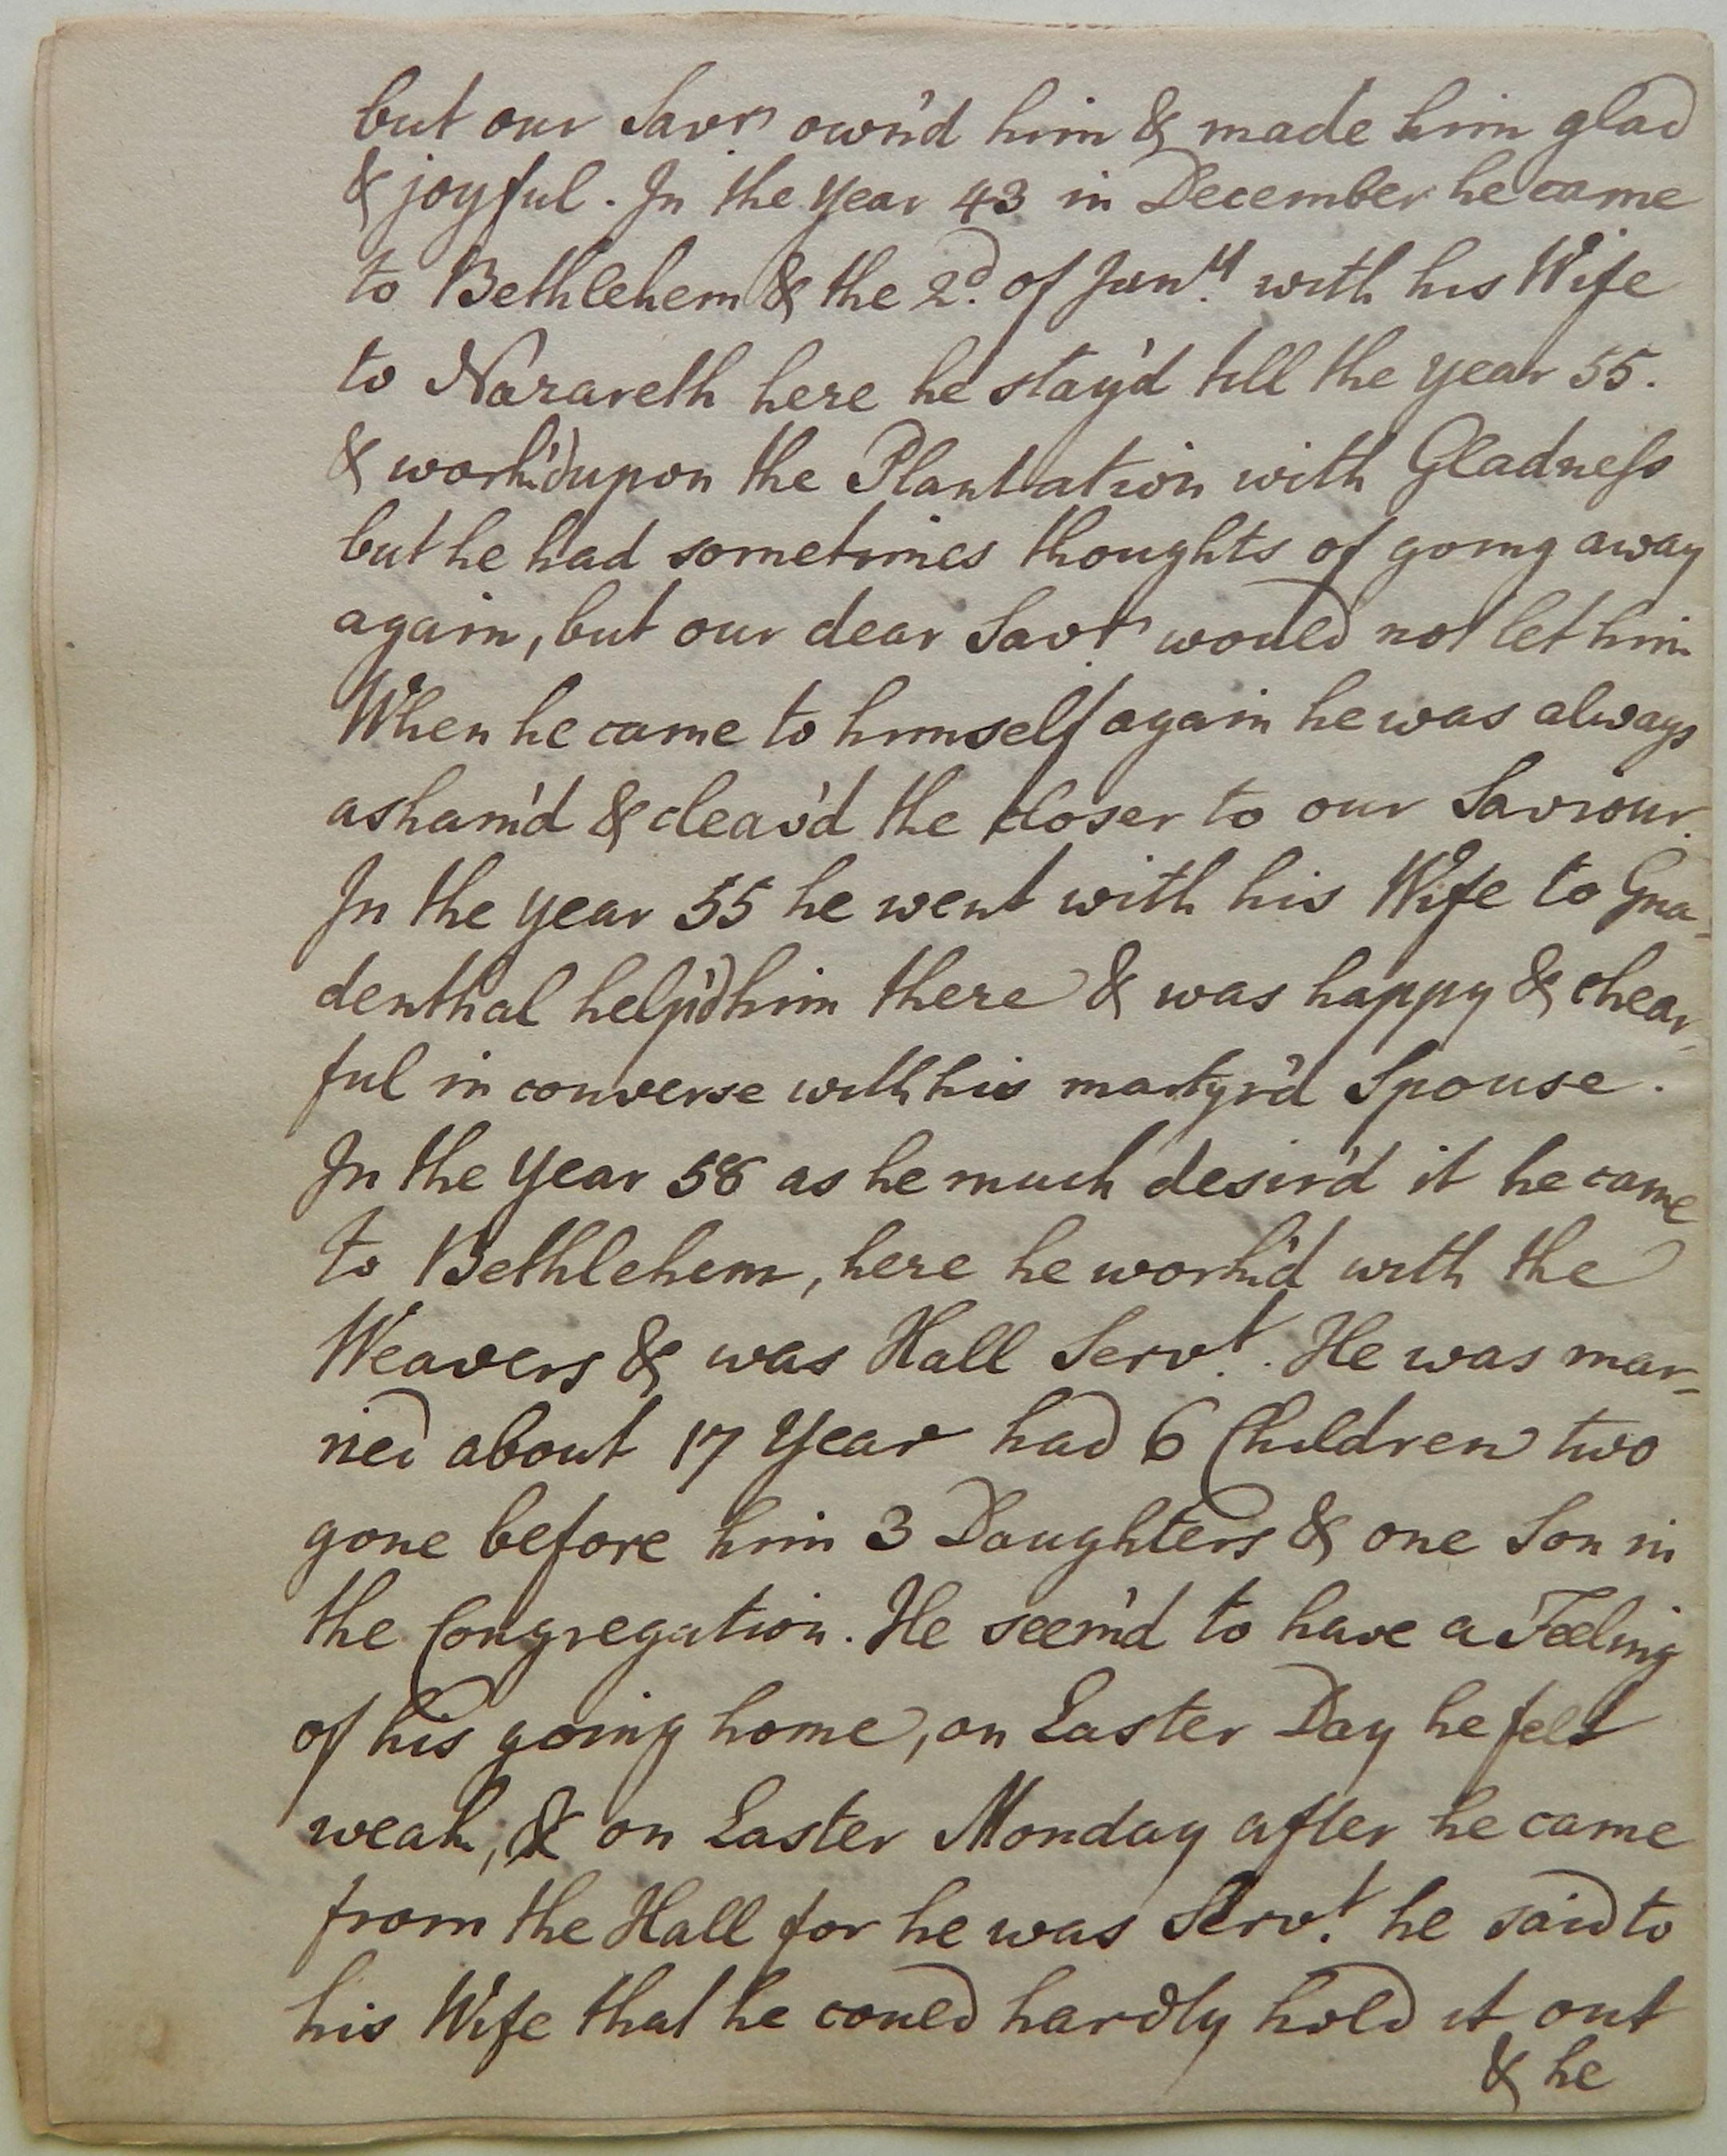 but our Savr. own'd him & made him glad
& joyful. In the Year 43 in December he came
to Bethlehem & the 2d. of Jany. with his Wife
to Nazareth here he stay'd till the year 55.
& work'd upon the Plantation with Gladness
but he had sometimes thoughts of going away
again, but our dear Savr. would not let him
When he came to himself again he was always
asham'd & cleav'd the closer to our Saviour.
In the year 55 he went with his Wife to Gna-
denthal help'd him there & was happy & chear-
ful in converse with his martyr'd Spouse.
In the Year 58 as he much desir'd it he came
to Bethlehem, here he work'd with the
Weavers & was Hall Servt. He was mar-
ried about 17 Year had 6 Children two
gone before him 3 Daughters & one Son in
the Congregation. He seem'd to have a Feeling
of his going home, on Easter Day he felt
weak, & on Easter Monday after he came
from the Hall for he was Servt. he said to
his Wife that he coued hardly hold it out
& he